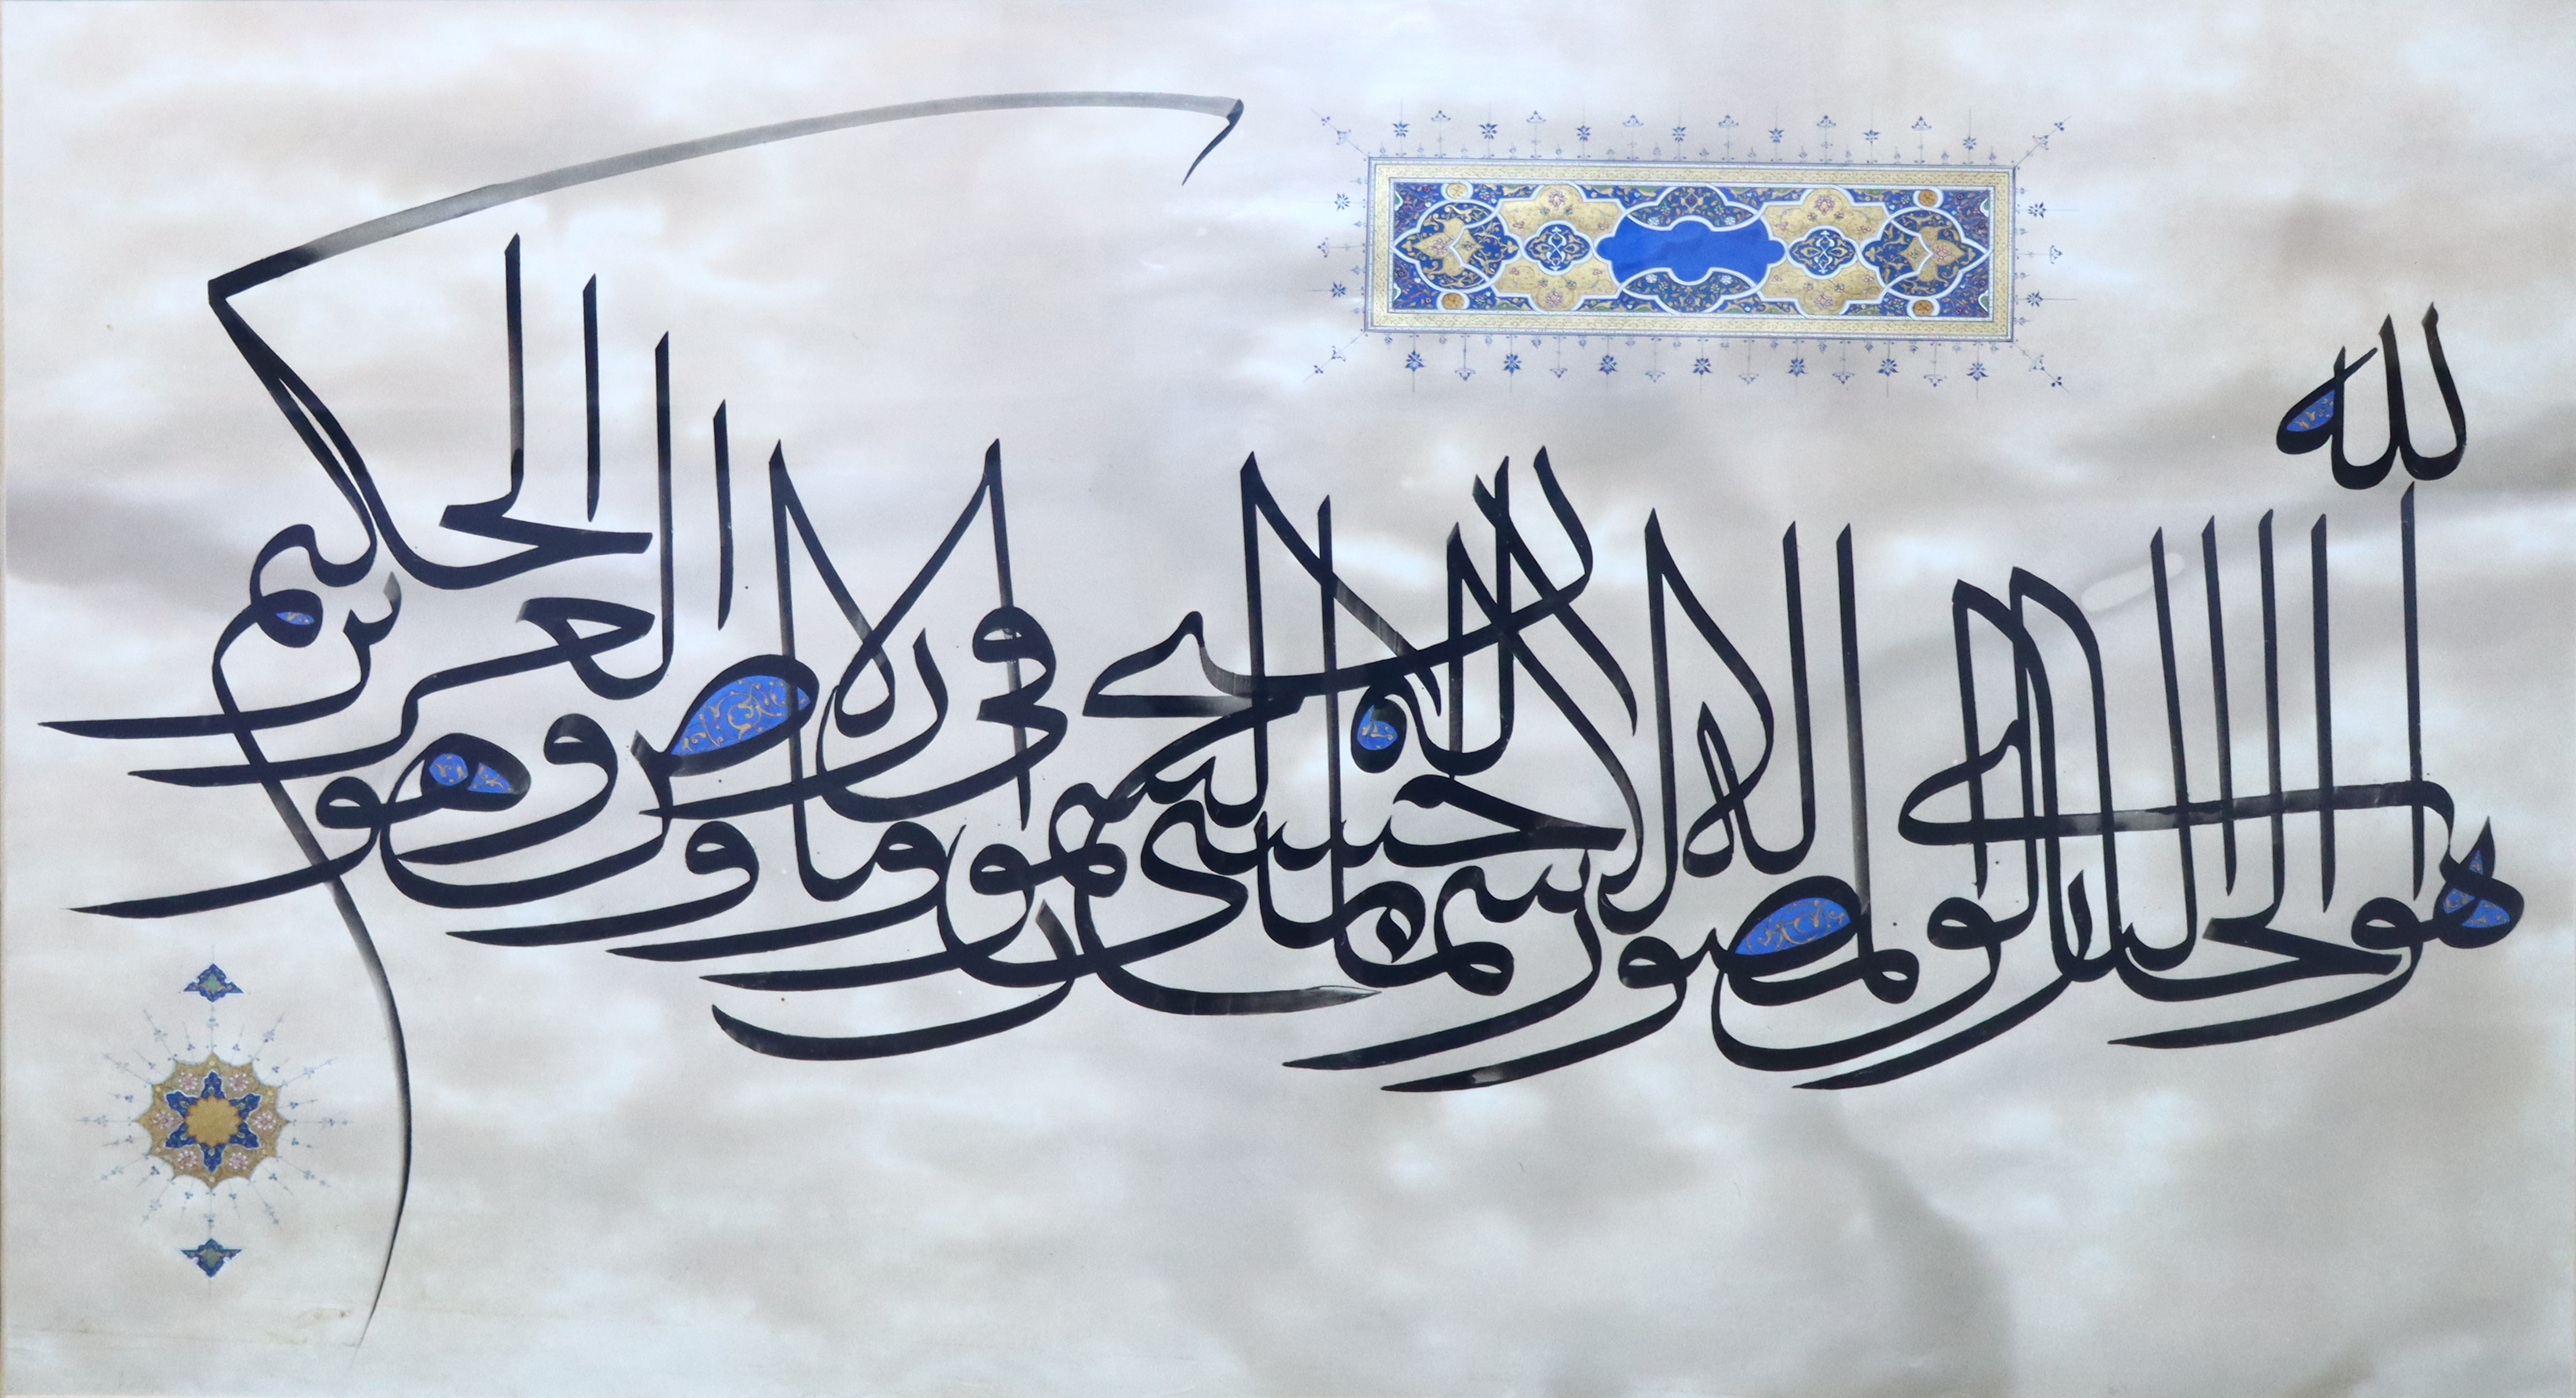 هو الله الخالق البارئ المصور له الاسماء الحسنى يسبح له ما في السموات والارض وهو العزيز الحكيم